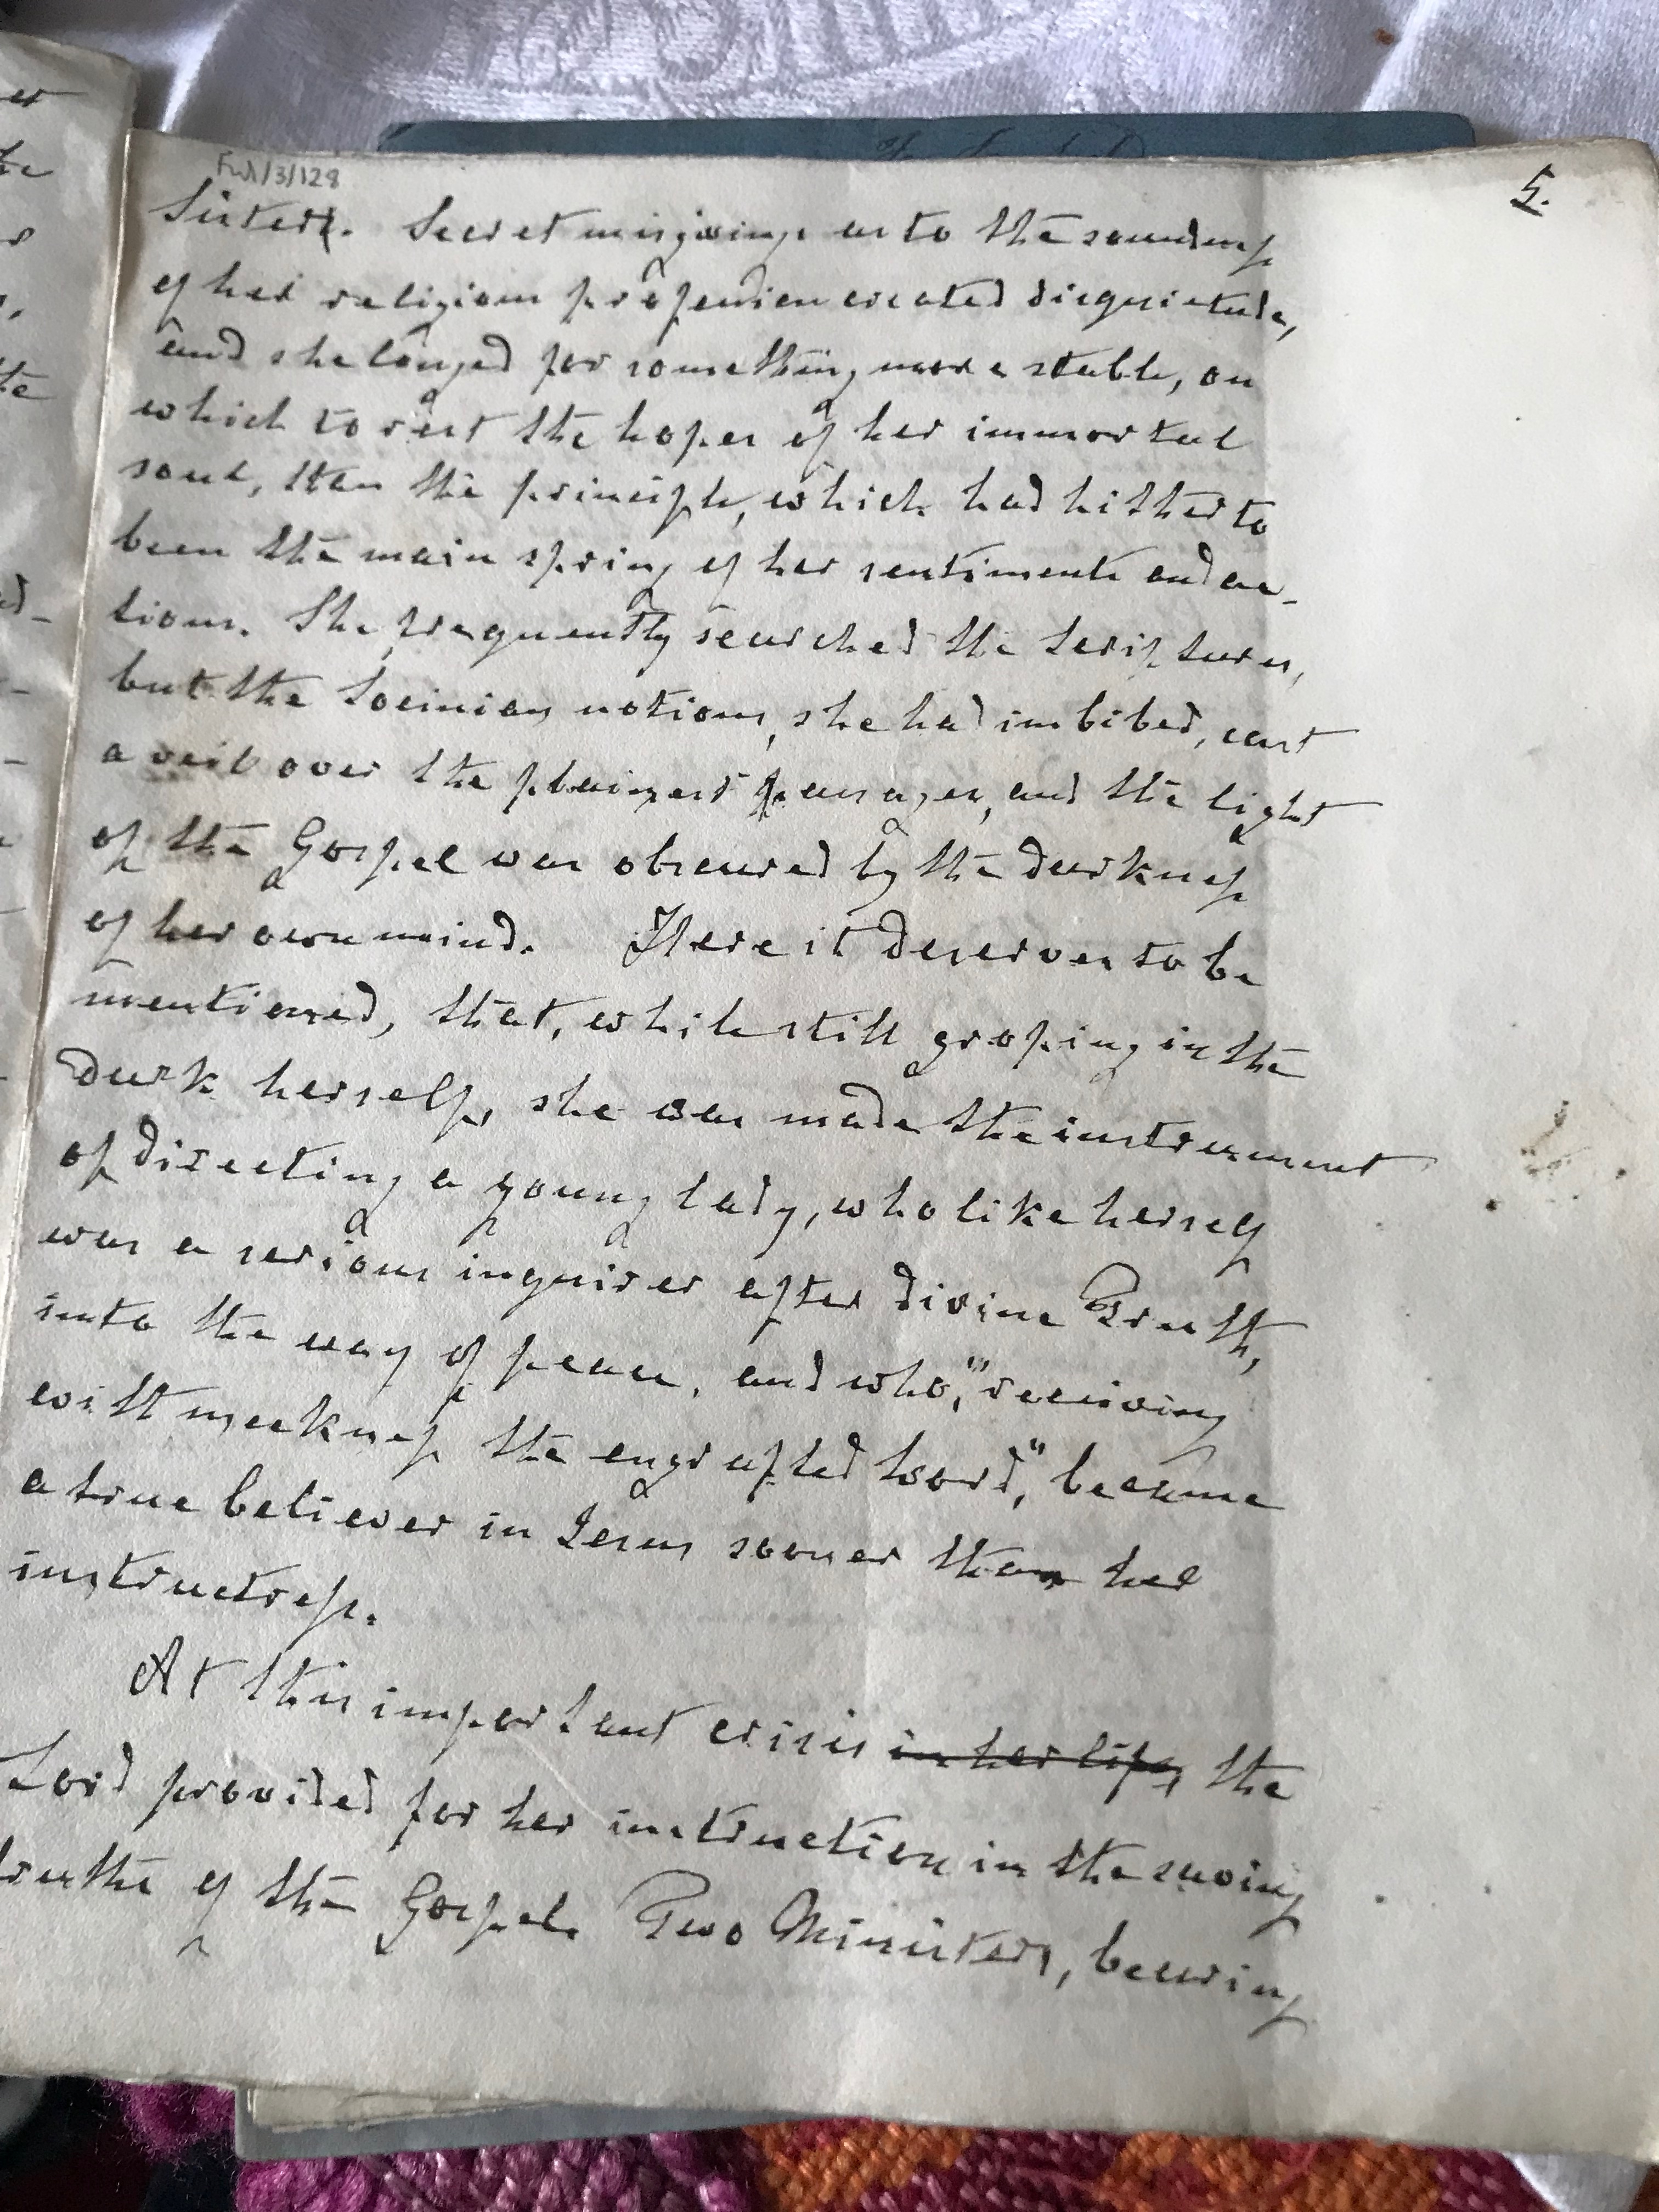 5.
FWI/3/128
Sisters. Secret misgivings as to the soundness
of her religious profession created disquietude,
and she longed for something more stable, on
which to rest the hopes of her immortal
soul, than the principle, which had hitherto
been the main spring of her sentiments and ac-
tions. She frequently searched the Scriptures,
but the Socinian notions, she had imbibed, cast
a veil over the plainest passages, and the light
of the Gospel was obscured by the darkness
of her own mind. Here it deserves to be
mentioned, that, while still groping in the
dark herself, she was made the instrument
of directing a young lady, who like herself
was a serious inquirer after divine Truth,
into the way of peace, and who, "receiving
with meekness the engrafted word," became
a true believer in Jesus sooner than her
instructress.
At this important crisis in her life, the
Lord provided for her instruction in the saving
truths of the Gospel. Two Ministers, bearing